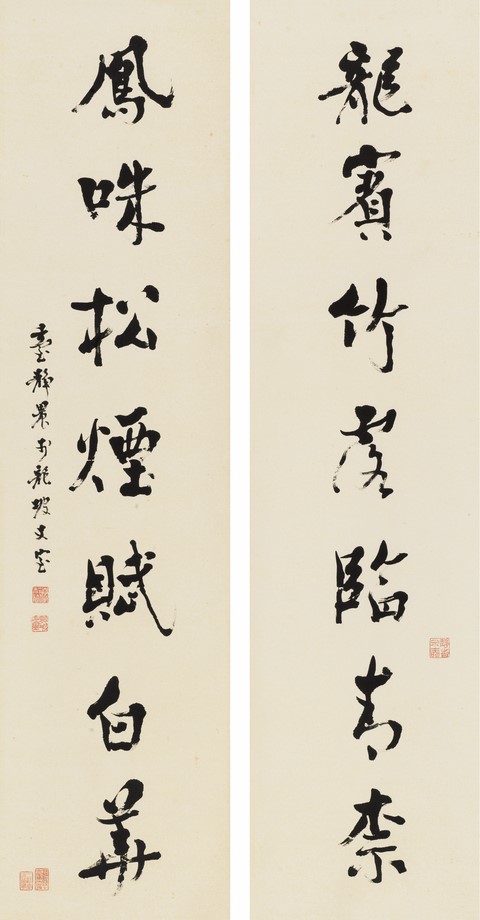 龍賓竹露臨青柰
鳳咮松煙賦白華
臺靜農於龍坡丈室